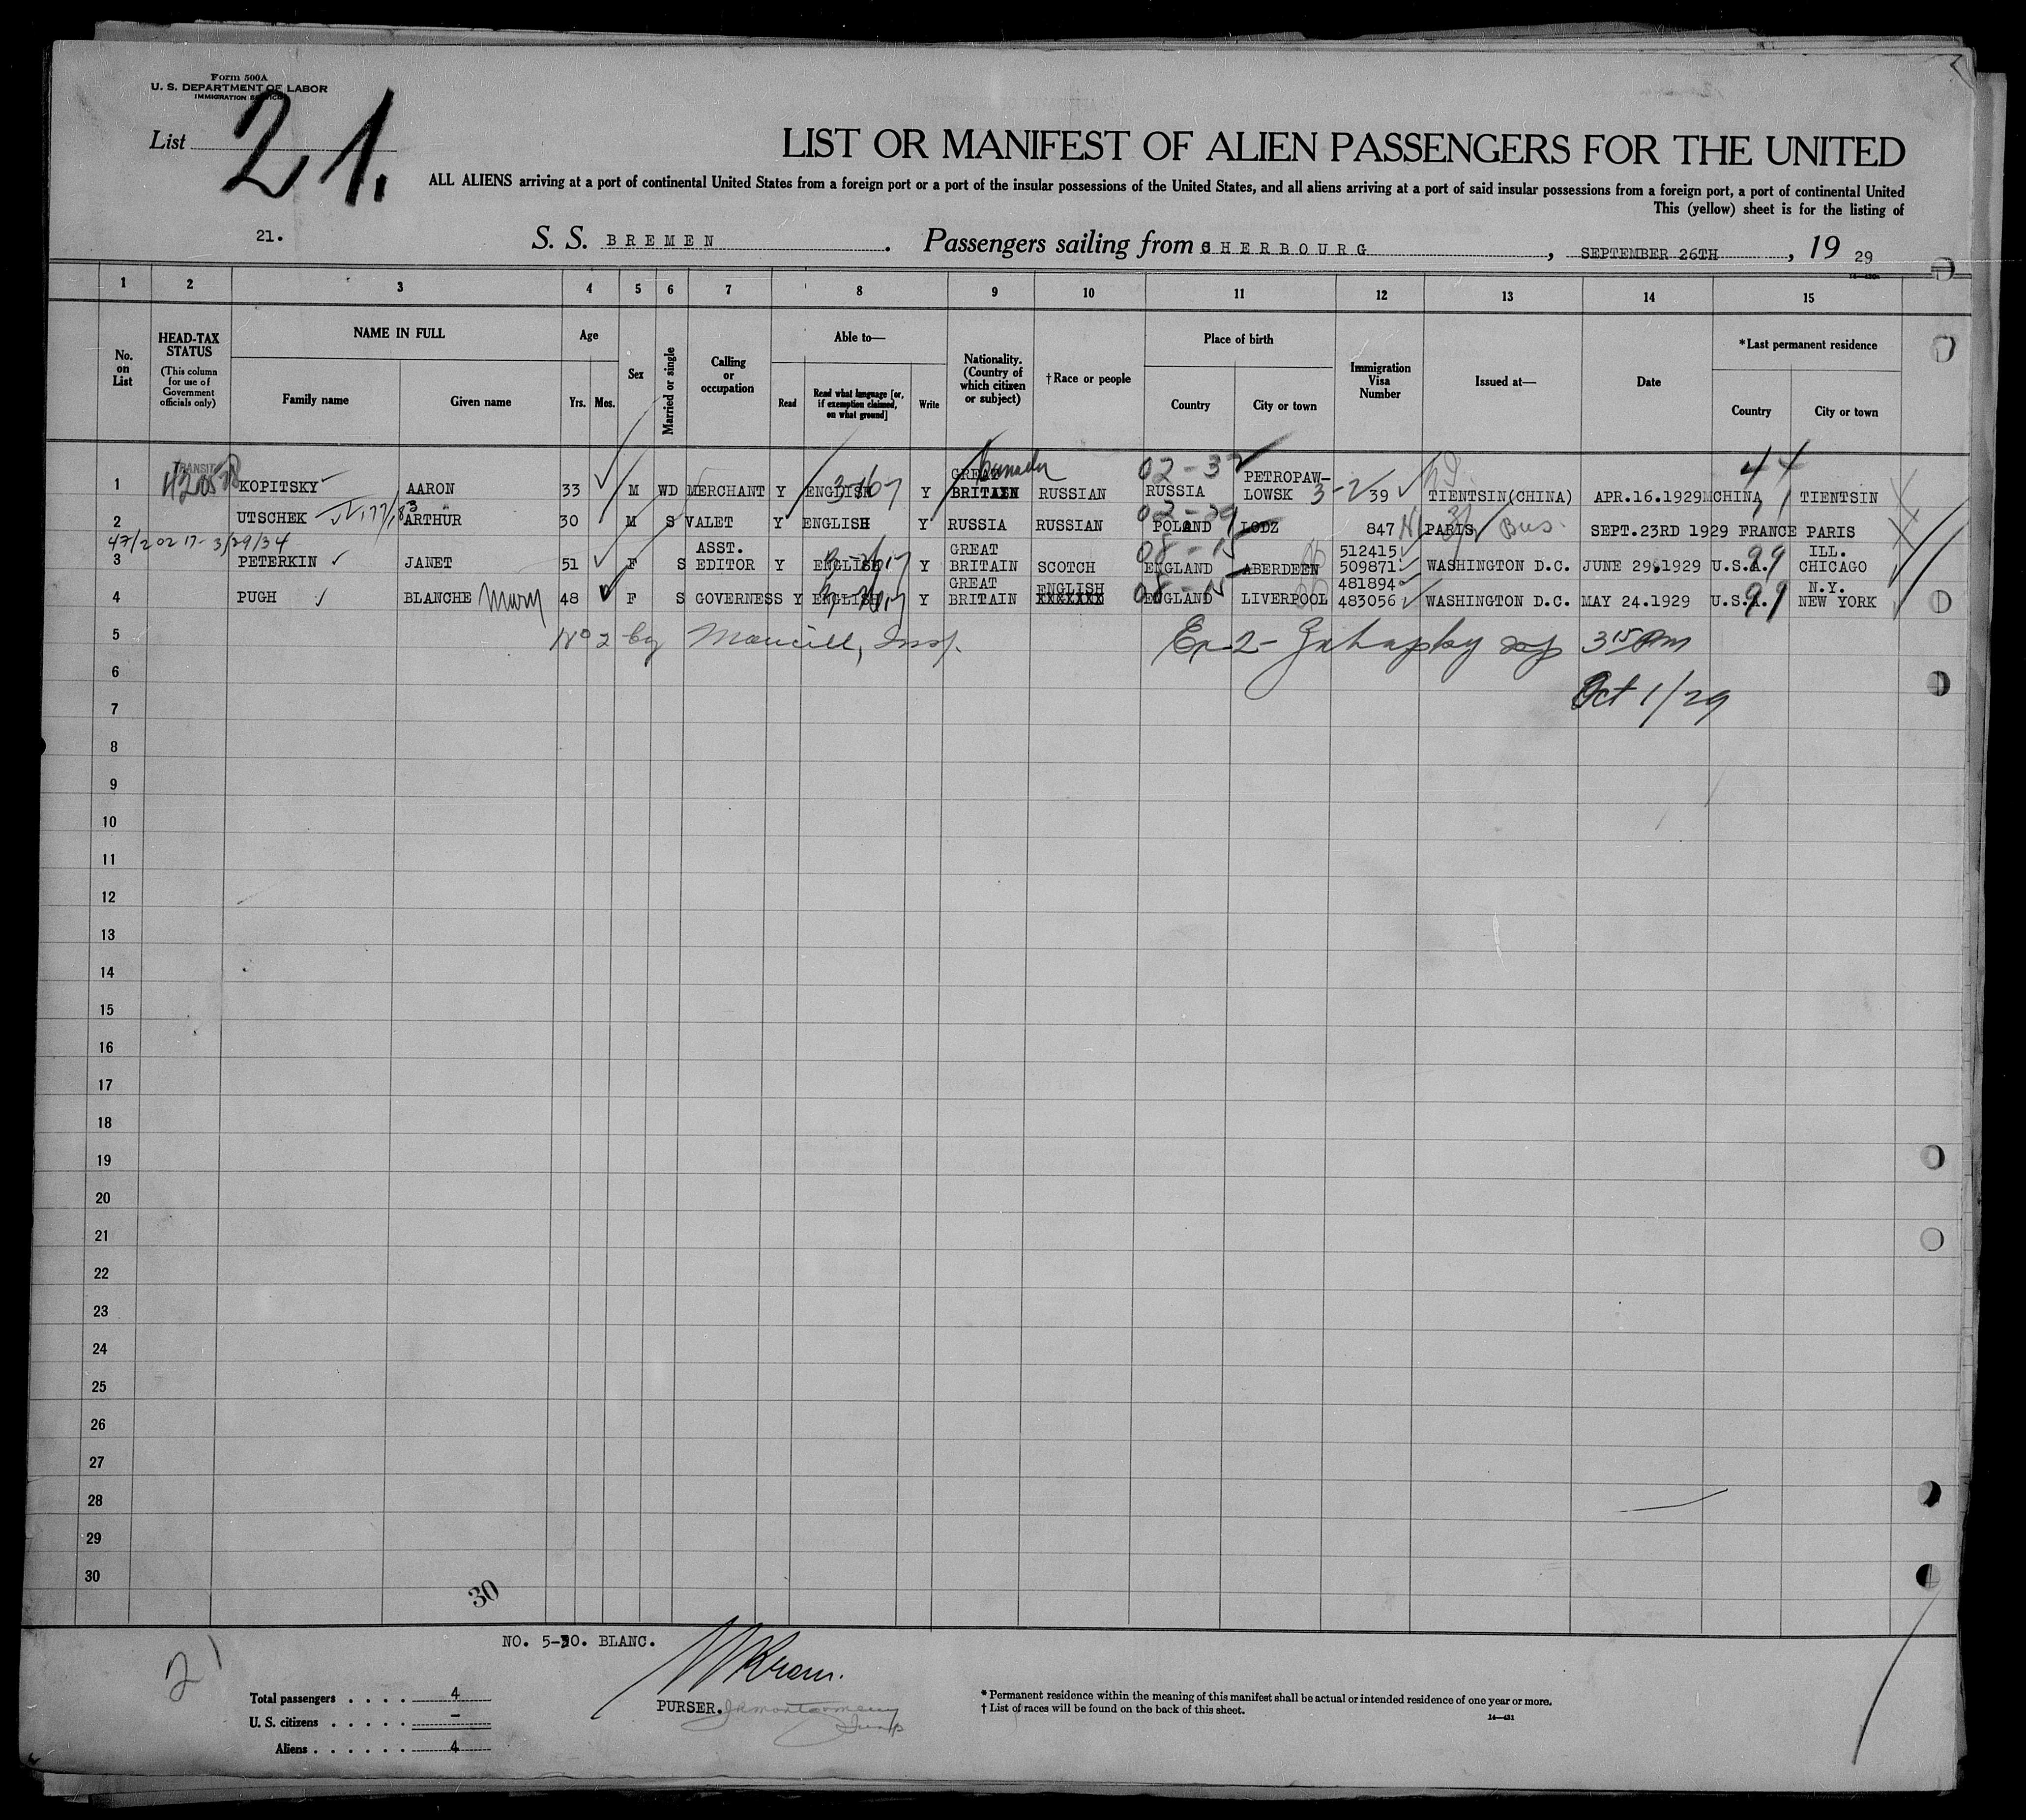 Form 500A
U. S. DEPARTMENT OF LABOR
IMMIGRATION SERVICE
List 21.
LIST OR MANIFEST OF ALIEN PASSENGERS FOR THE UNITED
ALL ALIENS arriving at a port of continental United States from a foreign port or a port of the insular possessions of the United States, and all aliens arriving at a port of said insular possessions from a foreign port, a port of continental United
This (yellow) sheet is for the listing of
21.
S. S. BREMEN. Passengers sailing from CHERBOURG, SEPTEMBER 26TH, 1929
1 2 3 4 5 6 7 8 9 10 11 12 13 14 15
No. on List
HEAD-TAX STATUS
(This column for use of Government officials only)
NAME IN FULL
Family name
Given name
Age
Yrs. Mos.
Sex
Married or single
Calling or occupation
Able to—
Read
Read what language [or, if exemption claimed, on what ground]
Write
Nationality. (Country of which citizen or subject)
†Race or people
Place of birth
Country
City or town
Immigration Visa Number
Issued at—
Date
*Last permanent residence
Country
City or town
TRANSIT GREAT Canada 02-32 PETROPAW- 44
1 KOPITSKY AARON 33 M WD MERCHANT Y ENGLISH Y BRITAIN RUSSIAN RUSSIA LOWSK 3-2 39 TIENTSIN(CHINA) APR.16.1929 CHINA TIENTSIN
2 UTSCHEK ARTHUR 30 M S VALET Y ENGLISH Y RUSSIA RUSSIAN POLAND LODZ 847 PARIS Bus. SEPT.23RD 1929 FRANCE PARIS
47/20217-3/29/34 ASST. GREAT 08-15 512415 ILL.
3 PETERKIN JANET 51 F S EDITOR Y ENGLISH Y BRITAIN SCOTCH ENGLAND ABERDEEN 509871 WASHINGTON D.C. JUNE 29.1929 U.S.A. 99 CHICAGO
GREAT ENGLISH 08-15 481894 N.Y.
4 PUGH BLANCHE Mary 48 F S GOVERNESS Y ENGLISH Y BRITAIN XXXXXXX ENGLAND LIVERPOOL 483056 WASHINGTON D.C. MAY 24.1929 U.S.A. 99 NEW YORK
5 No 2 by Insp. 3 15 PM
6
Oct 1/29
7
8
9
10
11
12
13
14
15
16
17
18
19
20
21
22
23
24
25
26
27
28
29
30
30
NO. 5-30. BLANC.
21
Total passengers . . . . 4
U. S. citizens . . . . . —
Aliens . . . . . . 4
PURSER.
* Permanent residence within the meaning of this manifest shall be actual or intended residence of one year or more.
† List of races will be found on the back of this sheet.
14—431